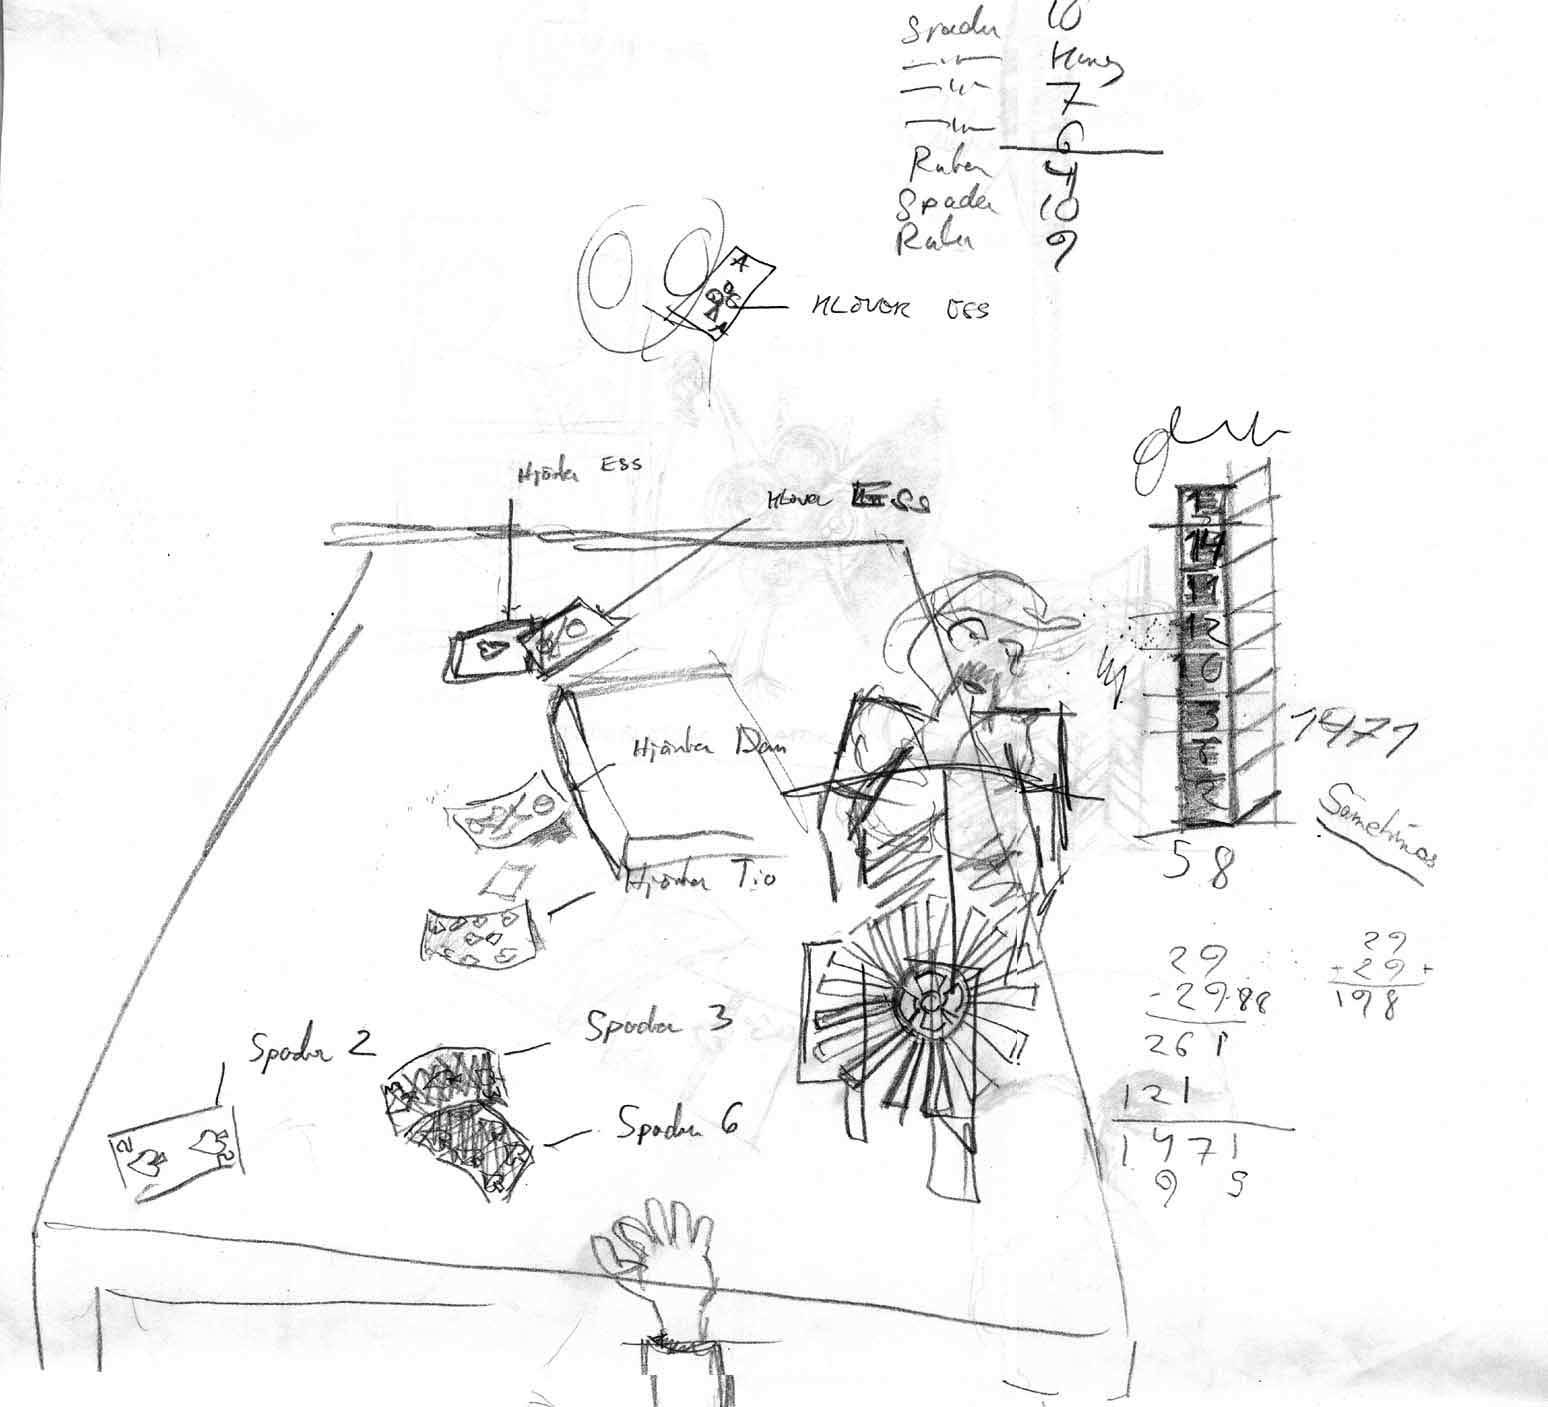 Spader 10
—"— Kung
—"— 7
—"— 6
Ruter 4
Spader 10
Ruter 9
A
KLÖVER ESS
Hjärter ESS
KLöver ESS
14
11
12
10
3
Hjärter Dam
1471
58
Hjärter Tio
29
-29.88
261
29
+29+
198
Spader 3
Spader 2
121
Spader 6
1471
9 9
2
2